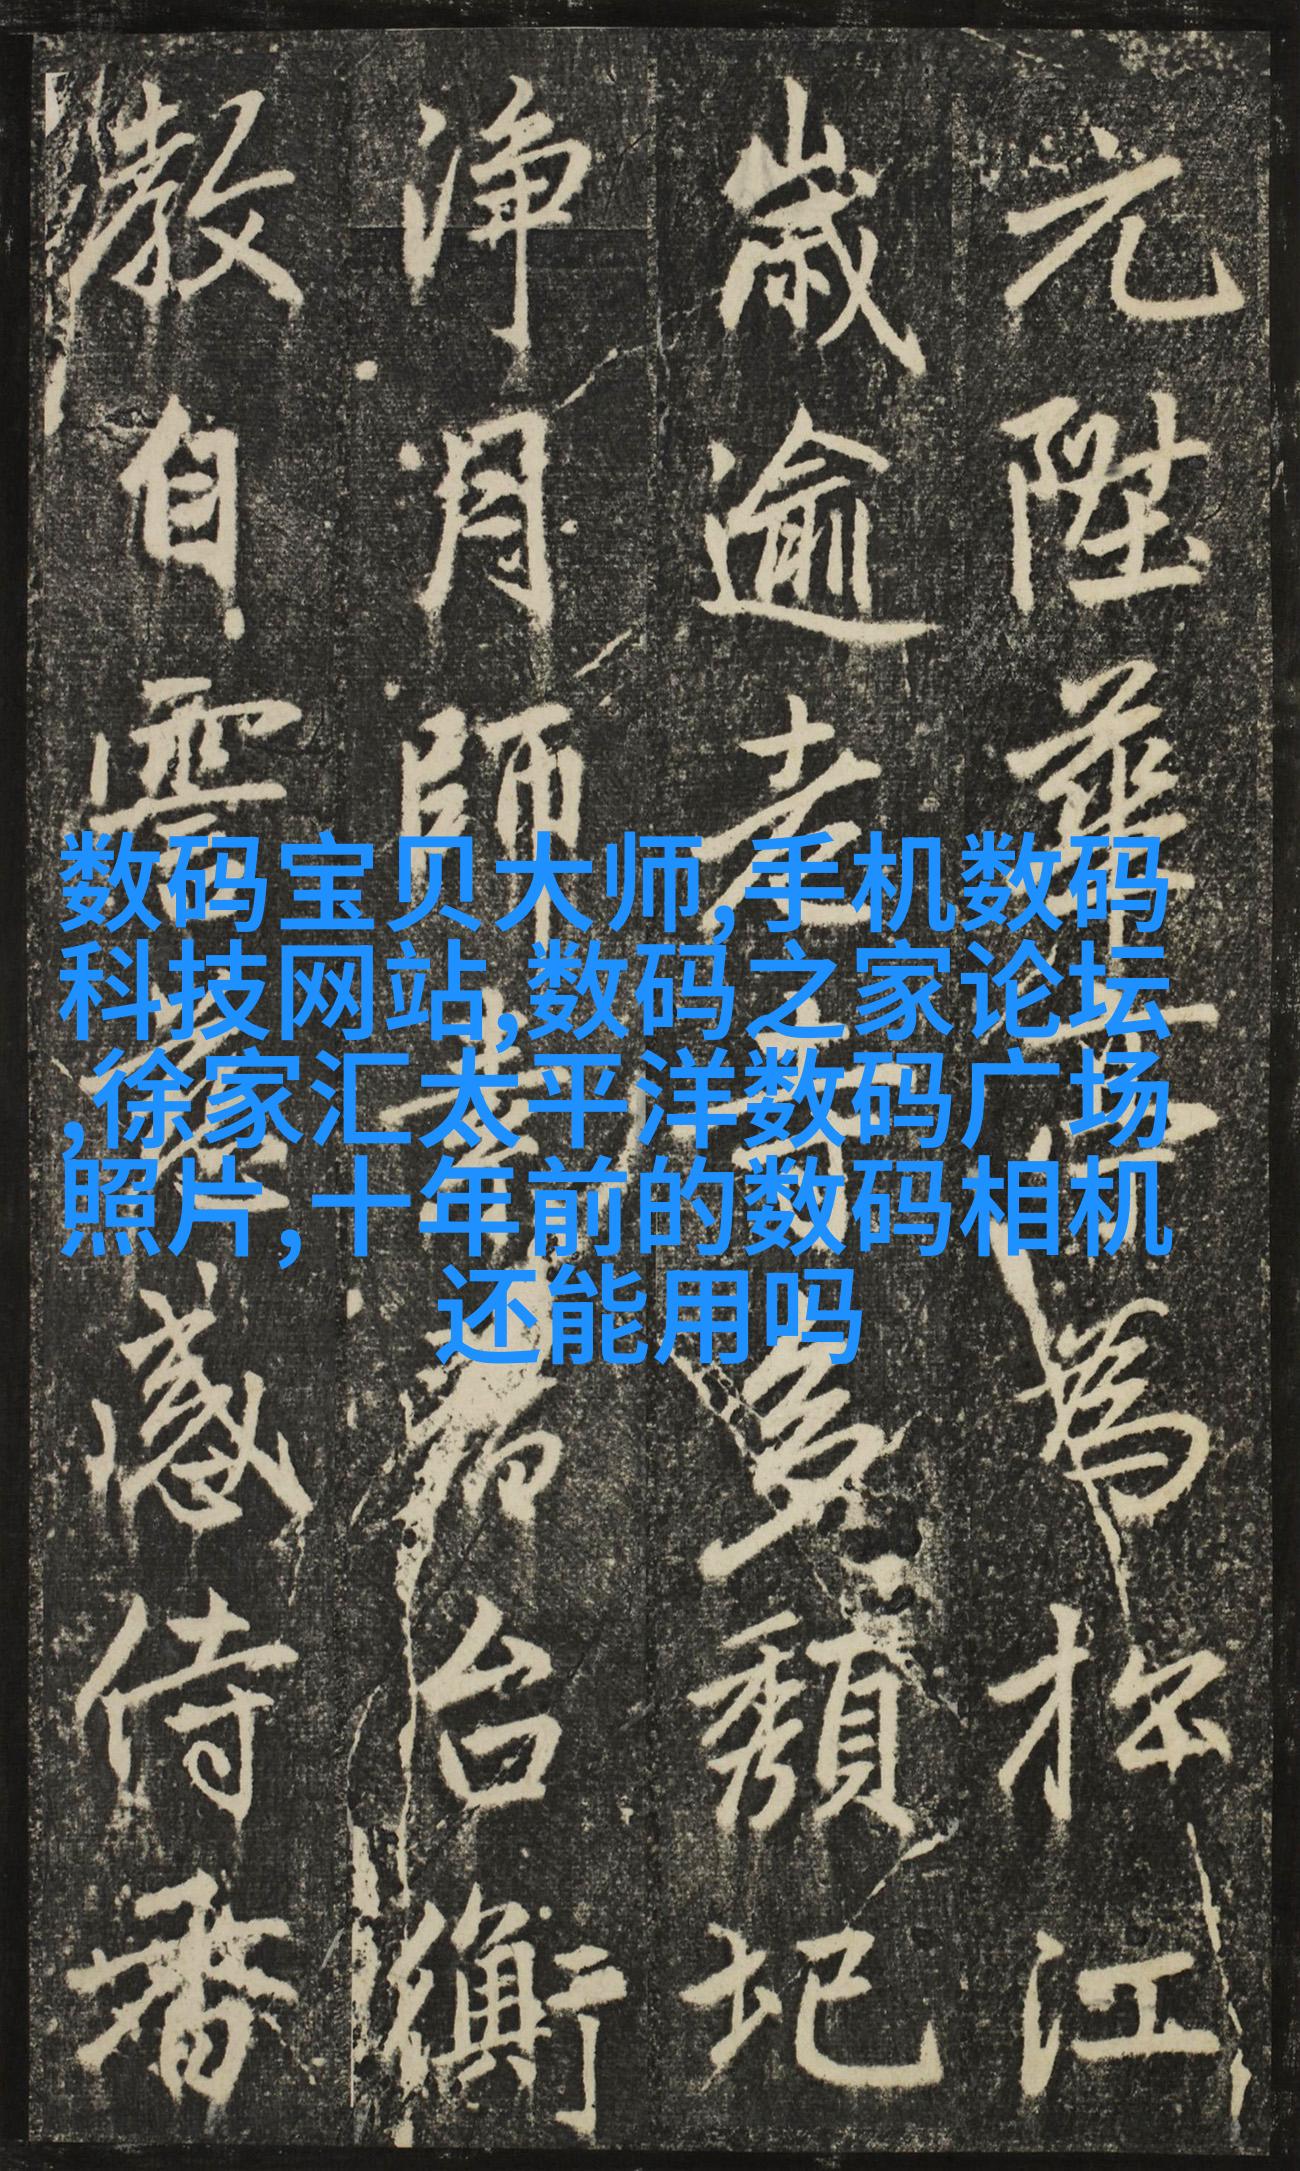 数码宝贝大师,手机数码
科技网站,数码之家论坛
,徐家汇太平洋数码广场
照片,十年前的数码相机
还能用吗
元陞華為松江
歲逾老多頹圮
淨月師台衡
教自感侍香